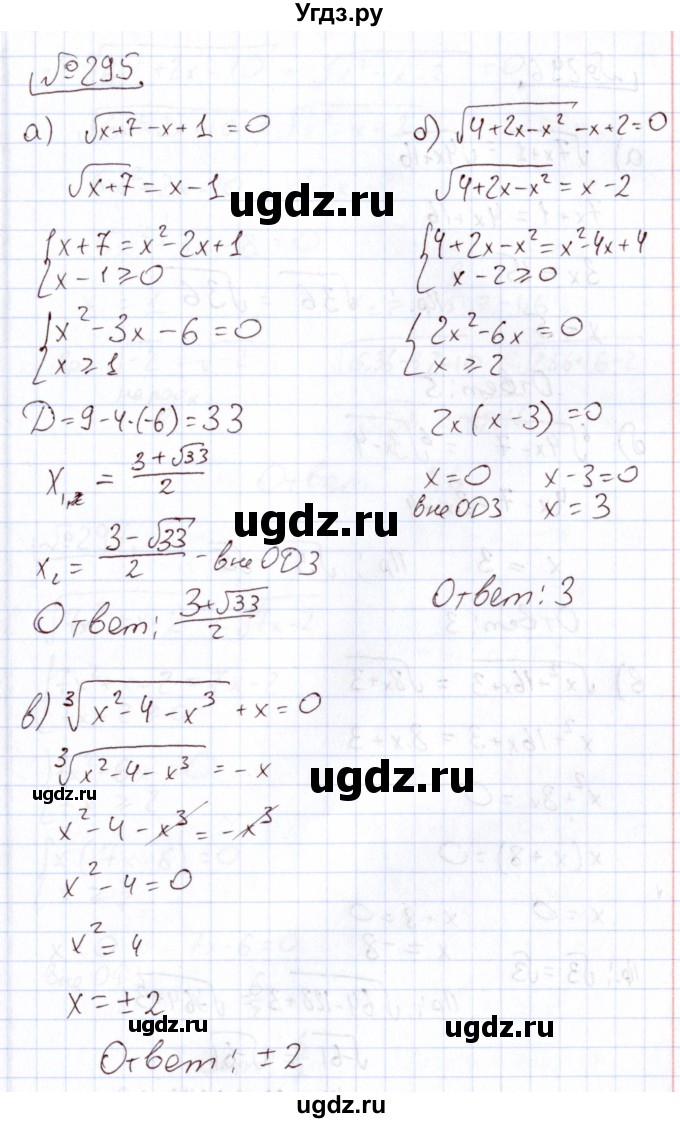 Угдз.ру
№295.
а) √(x+7) - x + 1 = 0
√(x+7) = x - 1
ugdz.ru
{ x + 7 = x² - 2x + 1
{ x - 1 ⩾ 0
{ x² - 3x - 6 = 0
{ x ⩾ 1
D = 9 - 4·(-6) = 33
x₁,₂ = (3 + √33)/2
ugdz.ru
x₂ = (3 - √33)/2 - вне ОДЗ
Ответ: (3 + √33)/2
ugdz.ru
б) √(4 + 2x - x²) - x + 2 = 0
√(4 + 2x - x²) = x - 2
{ 4 + 2x - x² = x² - 4x + 4
{ x - 2 ⩾ 0
{ 2x² - 6x = 0
{ x ⩾ 2
2x(x - 3) = 0
x = 0 x - 3 = 0
вне ОДЗ x = 3
Ответ: 3
в) ∛(x² - 4 - x³) + x = 0
∛(x² - 4 - x³) = -x
ugdz.ru
ugdz.ru
x² - 4 - x³ = -x³
x² - 4 = 0
x² = 4
x = ± 2
ugdz.ru
ugdz.ru
Ответ: ± 2
ugdz.ru
ugdz.ru